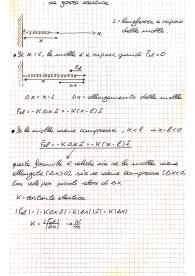 la forza elastica
L = lunghezza a riposo
della molla
x
• Se x = L, la molla è a riposo quindi F̄el = 0
F̄el
x
Δx = x - L Δx = allungamento della molla
F̄el = -KΔx î = -K(x - L) î
• Se la molla viene compressa, x < L → x - L < 0
F̄el = -KΔx î = -K(x - L) î
questa formula è valida sia se la molla viene
allungata (Δx > 0), sia se viene compressa (Δx < 0)
valori di Δx
K = costante elastica
|F̄el| = |-KΔx î| = K|Δx||î| = K|Δx|
K = |F̄el| / |Δx| → N/m